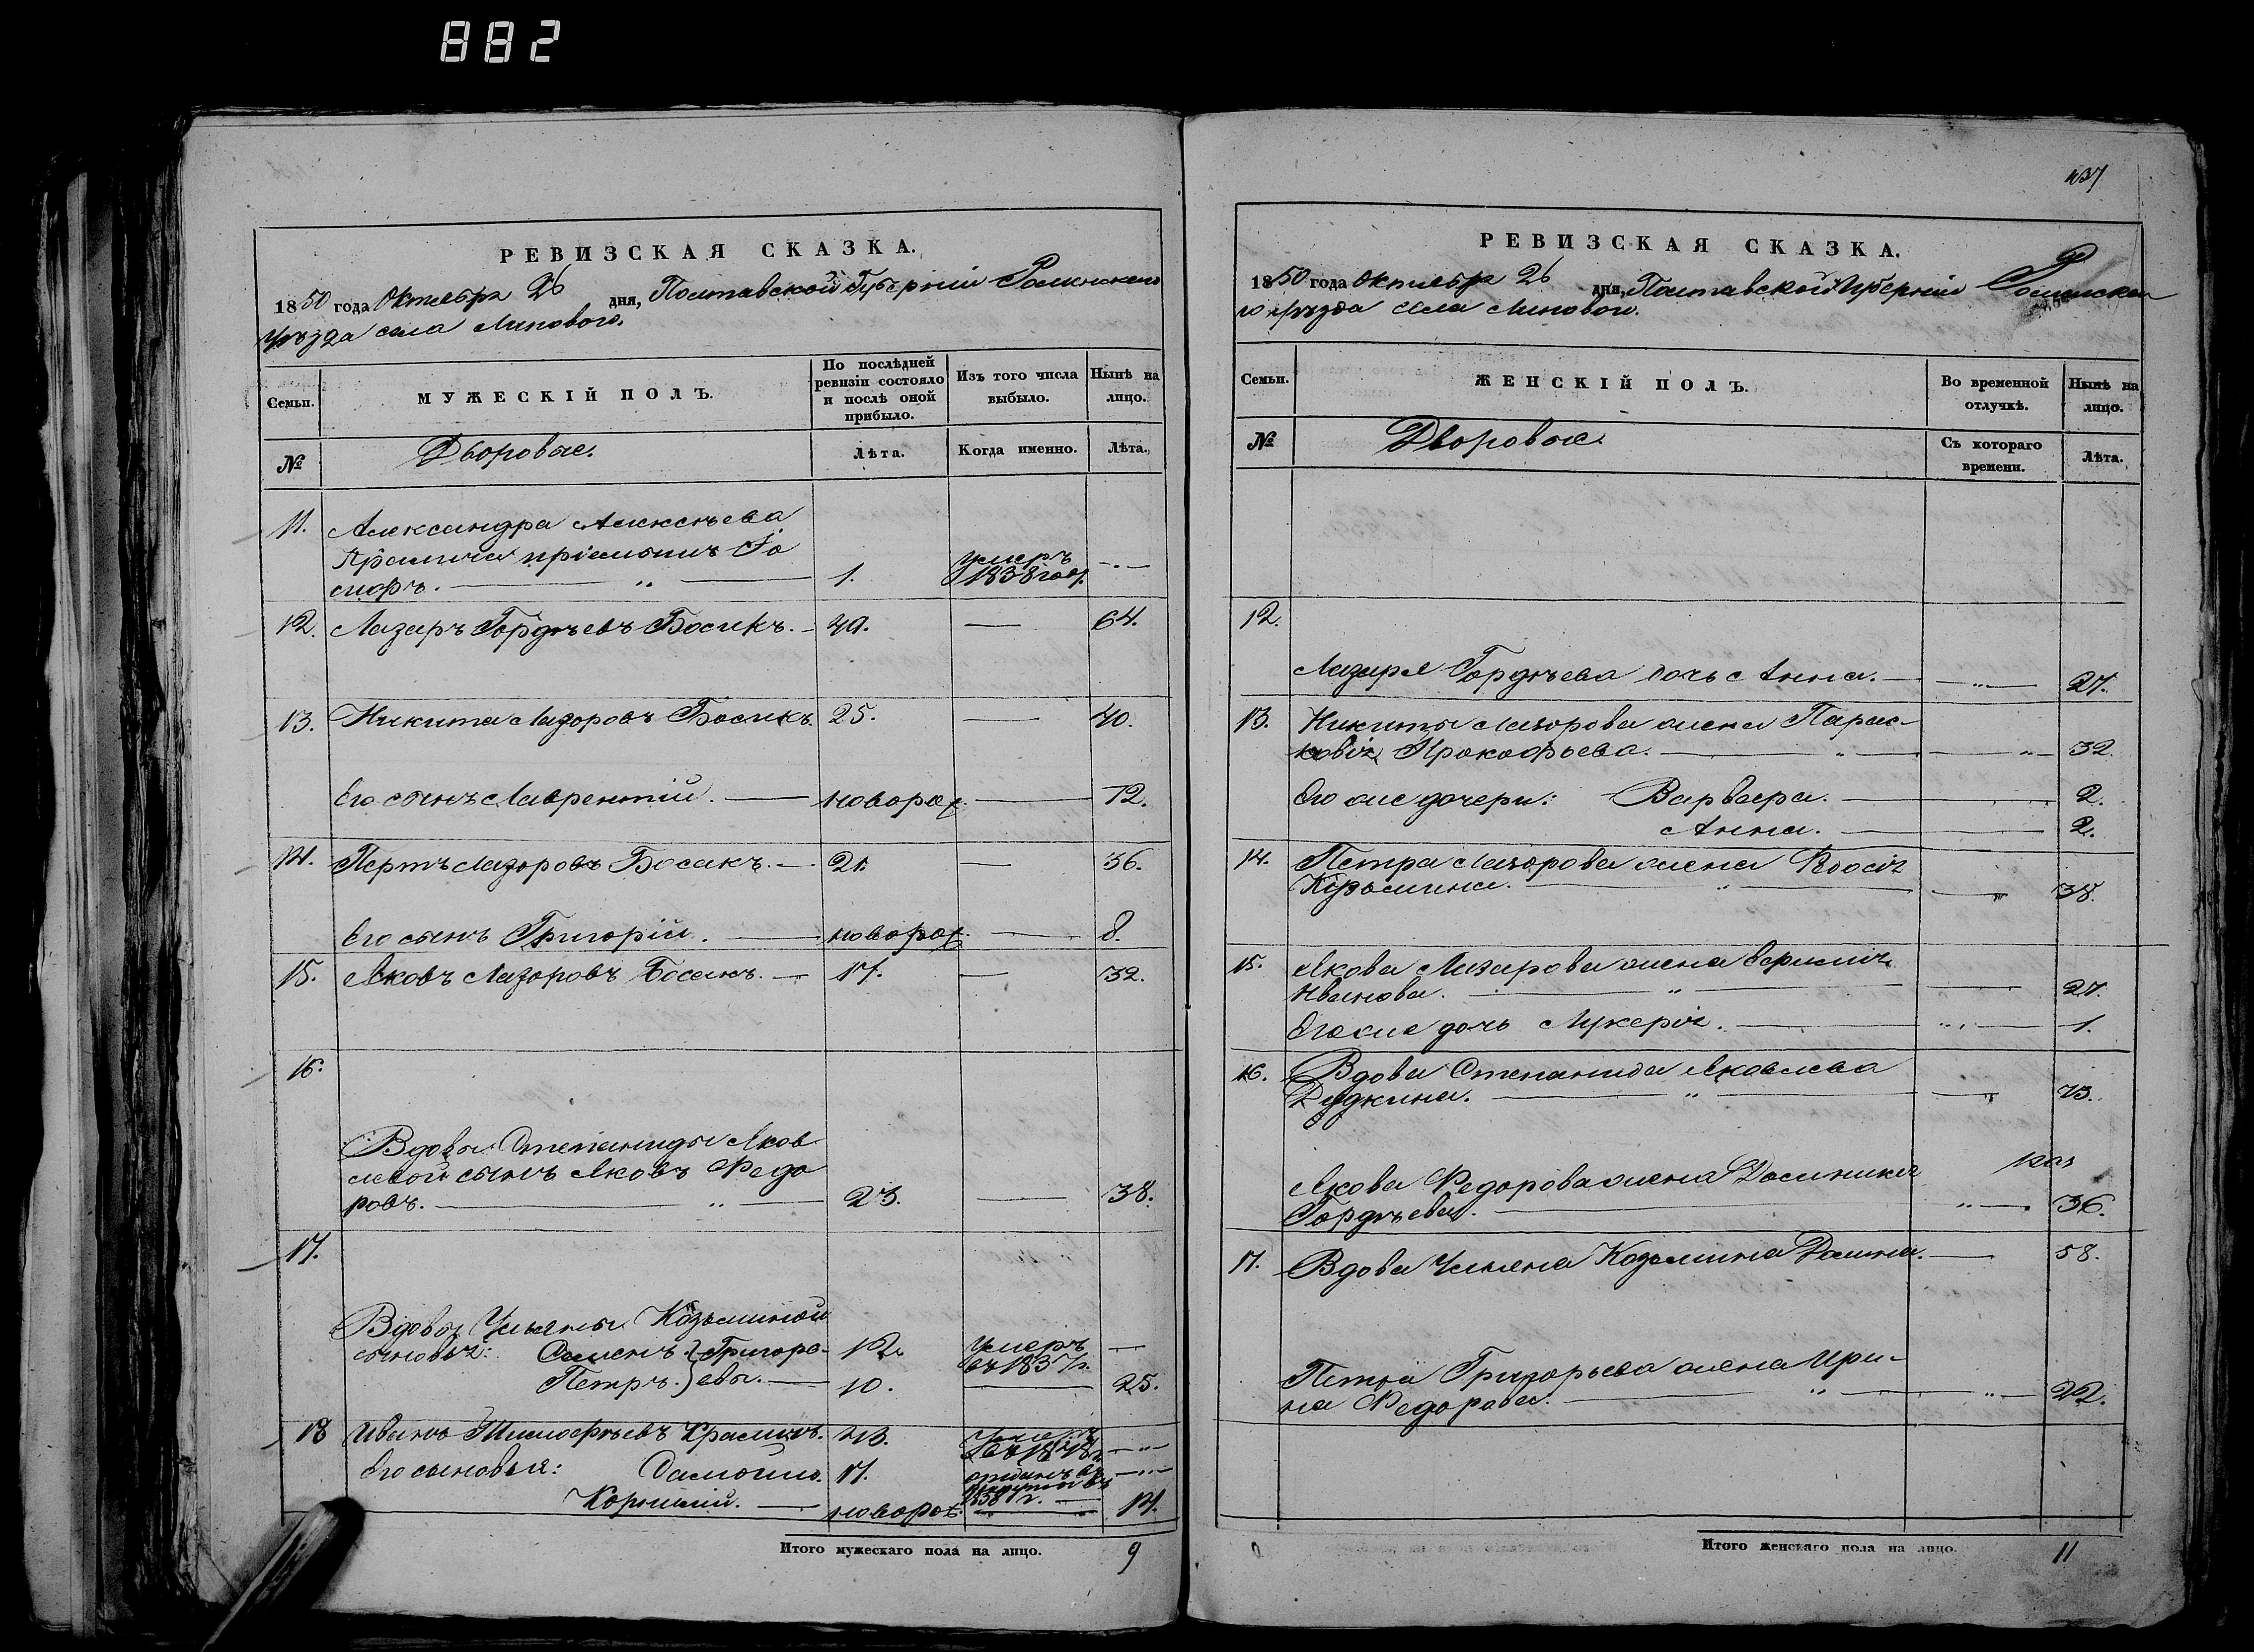 882
РЕВИЗСКАЯ СКАЗКА.
1850 года Октября 26 дня, Полтавской Губерніи Роменского
уѣзда села Липового.
Семьи.
МУЖЕСКІЙ ПОЛЪ.
По послѣдней ревизіи состояло и послѣ оной прибыло.
Изъ того числа выбыло.
Нынѣ на лицо.
№
Дворовые.
Лѣта.
Когда именно.
Лѣта.
11. Александра Алексѣева
пріемышъ Іо
сифъ. 1. умеръ 1838 год.
12. Лазаръ Гордѣевъ Босикъ. 49. 64.
13. Никита Лазоровъ Босикъ. 25. 40.
Его сынъ Лаврентій. новорож. 12.
14. Пертъ Лазоровъ Босакъ. 21. 36.
Его сынъ Григорій. новорож. 8.
15. Яковъ Лазоровъ Босакъ. 17. 32.
16.
Вдовы Степаниды Яков
левой сынъ Яковъ Федо
ровъ. 23. 38.
17.
Вдовы Ульяны Козьминой
сыновья: Семенъ Григорь- 12. умеръ въ 1837 г.
Петръ. евы. 10. 25.
18 Иванъ Тимофѣевъ 43.
Его сыновья: 17. отданъ въ рекруты въ 1838 г.
Корнилій. новорож. 14.
Итого мужескаго пола на лицо. 9
437
РЕВИЗСКАЯ СКАЗКА.
1850 года Октября 26 дня, Полтавской Губерніи Роменска
го уѣзда села Липового.
Семьи.
ЖЕНСКІЙ ПОЛЪ.
Во временной отлучкѣ.
Нынѣ на лицо.
№
Дворовые.
Съ котораго времени.
Лѣта.
12.
Лазаря Гордѣева дочь Анна. 27.
13. Никиты Лазорова жена Парас-
ковія Прокофьева. 32.
Его же дочери: Варвара. 2.
Анна. 2.
14. Петра Лазорова жена
Кузьмина. 38.
15. Якова Лазарова жена
Иванова. 27.
Его же дочь Лукерія. 1.
16. Вдова Степанида Яковлева
Дудкина. 73.
Якова Федорова жена Домникія
Гордѣева. 36.
17. Вдова Ульяна Козьмина 58.
Петра Григорьева жена Ири-
на Федорова. 22.
Итого женскаго пола на лицо. 11